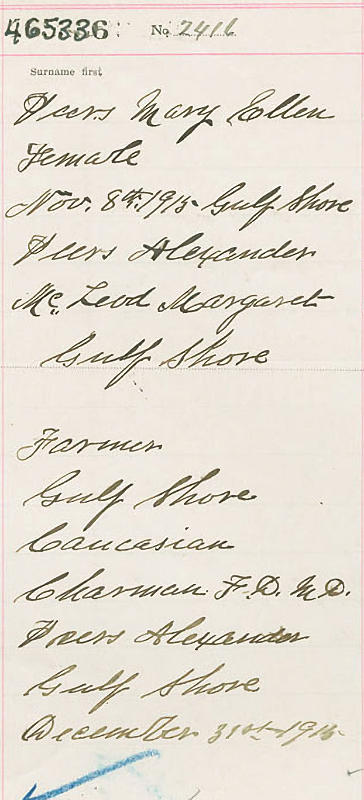 465336 No. 2416
Surname first
Peers Mary Ellen
Female
Nov. 8th. 1915 Gulf Shore
Peers Alexander
Mc. Leod Margaret
Gulf Shore
Farmer
Gulf Shore
Caucasian
Charman. F. D. M. D.
Peers Alexander
Gulf Shore
December 31st 1915